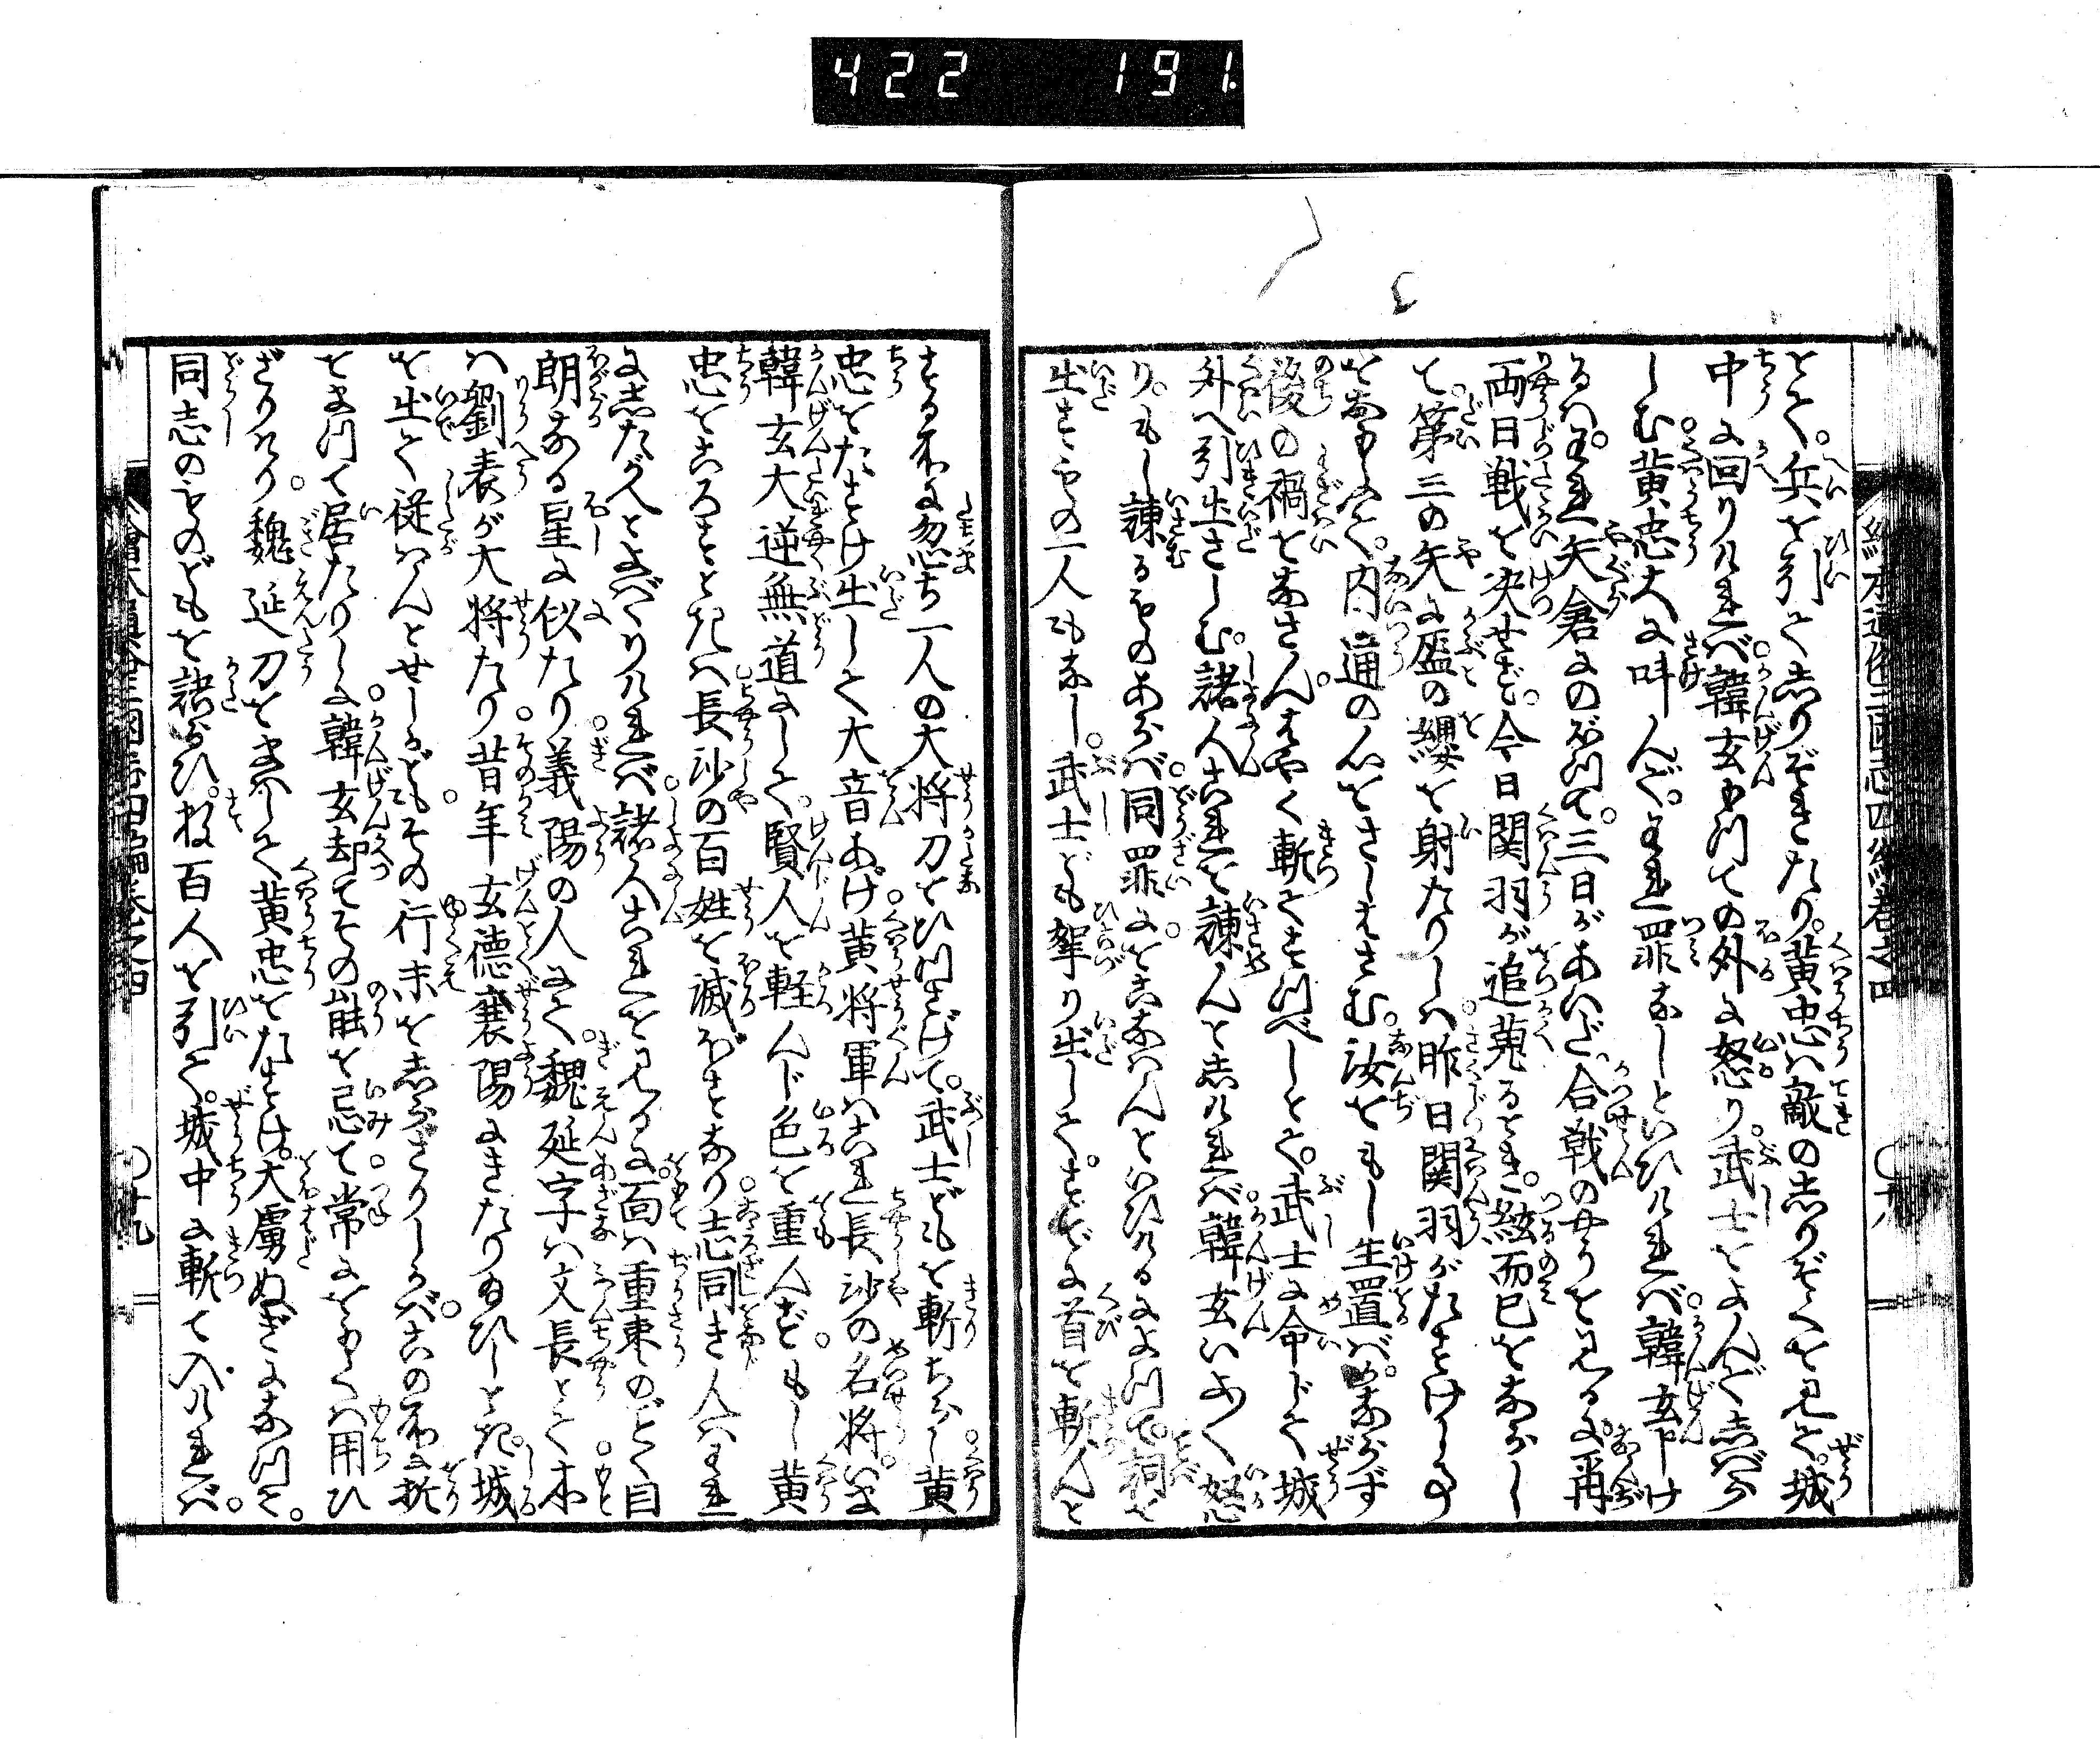 422 191
とて。兵を引てしりぞきたり。黄忠は敵のしりぞくを見て。城
中に回りければ韓玄もつての外に怒り。武士をよんでしばら
しむ黄忠大に叫んで。われ罪なしといひければ韓玄申ける
るは。われ矢倉にのぼつて。三日があいだ合戦のやうを見るに。再
両日戦を决せず。今日関羽が追蒐るとき。絃而已をならし
て。第三の矢に盔の纓を射たりしは昨日関羽がたすけしゆ
をおもふて。内通の心をさしはさむ。汝をもし生置ば。かならず
後の禍をなさん。はやく斬てすつべしとて。武士に命じて城
外へ引出さしむ。諸人これを諫んとしければ韓玄いよ〱怒
り。もし諫るものあらば同罪におこなはんといひけるによつて。詞を
出すもの一人もなし。武士ども牽り出して。すでに首を斬んと
する所に忽ち一人の大将刀をひつさげて。武士どもを斬ちらし黄
忠をたすけ出して大音あげ黄将軍はこれ長沙の名将。いま
韓玄大逆無道にして。賢人を軽んじ色を重んず。もし黄
忠をころすときは長沙の百姓を滅ぼすなり志同き人はわれ
にしたがへとよばゝりければ諸人これを見るに。面は重棗のごとく目
朗なる星に似たり義陽の人にて。魏延字は文長とて本
は劉表が大将たり昔年玄徳襄陽にきたり給ひしとき。城
を出て従はんとせしかども。その行末をしらざりしかば。この所に於
をまつて居たりしに韓玄却てその能を忌て。常におもくは用ひ
ざりけり。魏延刀をまはして黄忠をたすけ。大膚ぬぎになつて。
同志のものどもを誘ひ。数百人を引て。城中に斬て入ければ。